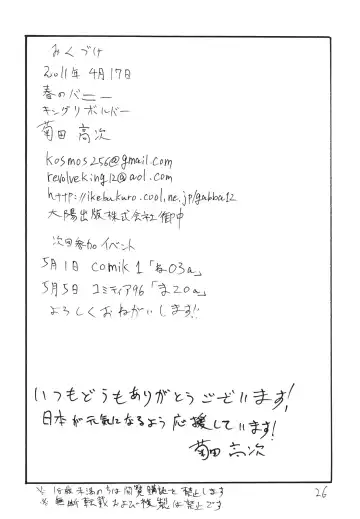 おくづけ
2011年 4月17日
春のバニー
キングリボルバー
菊田 高次
kosmos256@gmail.com
revolveking12@aol.com
http://ikebukuro.cool.ne.jp/gabba12
大陽出版株式会社御中
次回参加イベント
5月1日 comik1「な03a」
5月5日 コミティア96「ま20a」
よろしくおねがいします!
いつもどうもありがとうございます!
日本が元気になるよう応援しています!
菊田 高次
26
※ 18歳未満の方は閲覧購読を禁止します
※ 無断転載および複製は禁止です